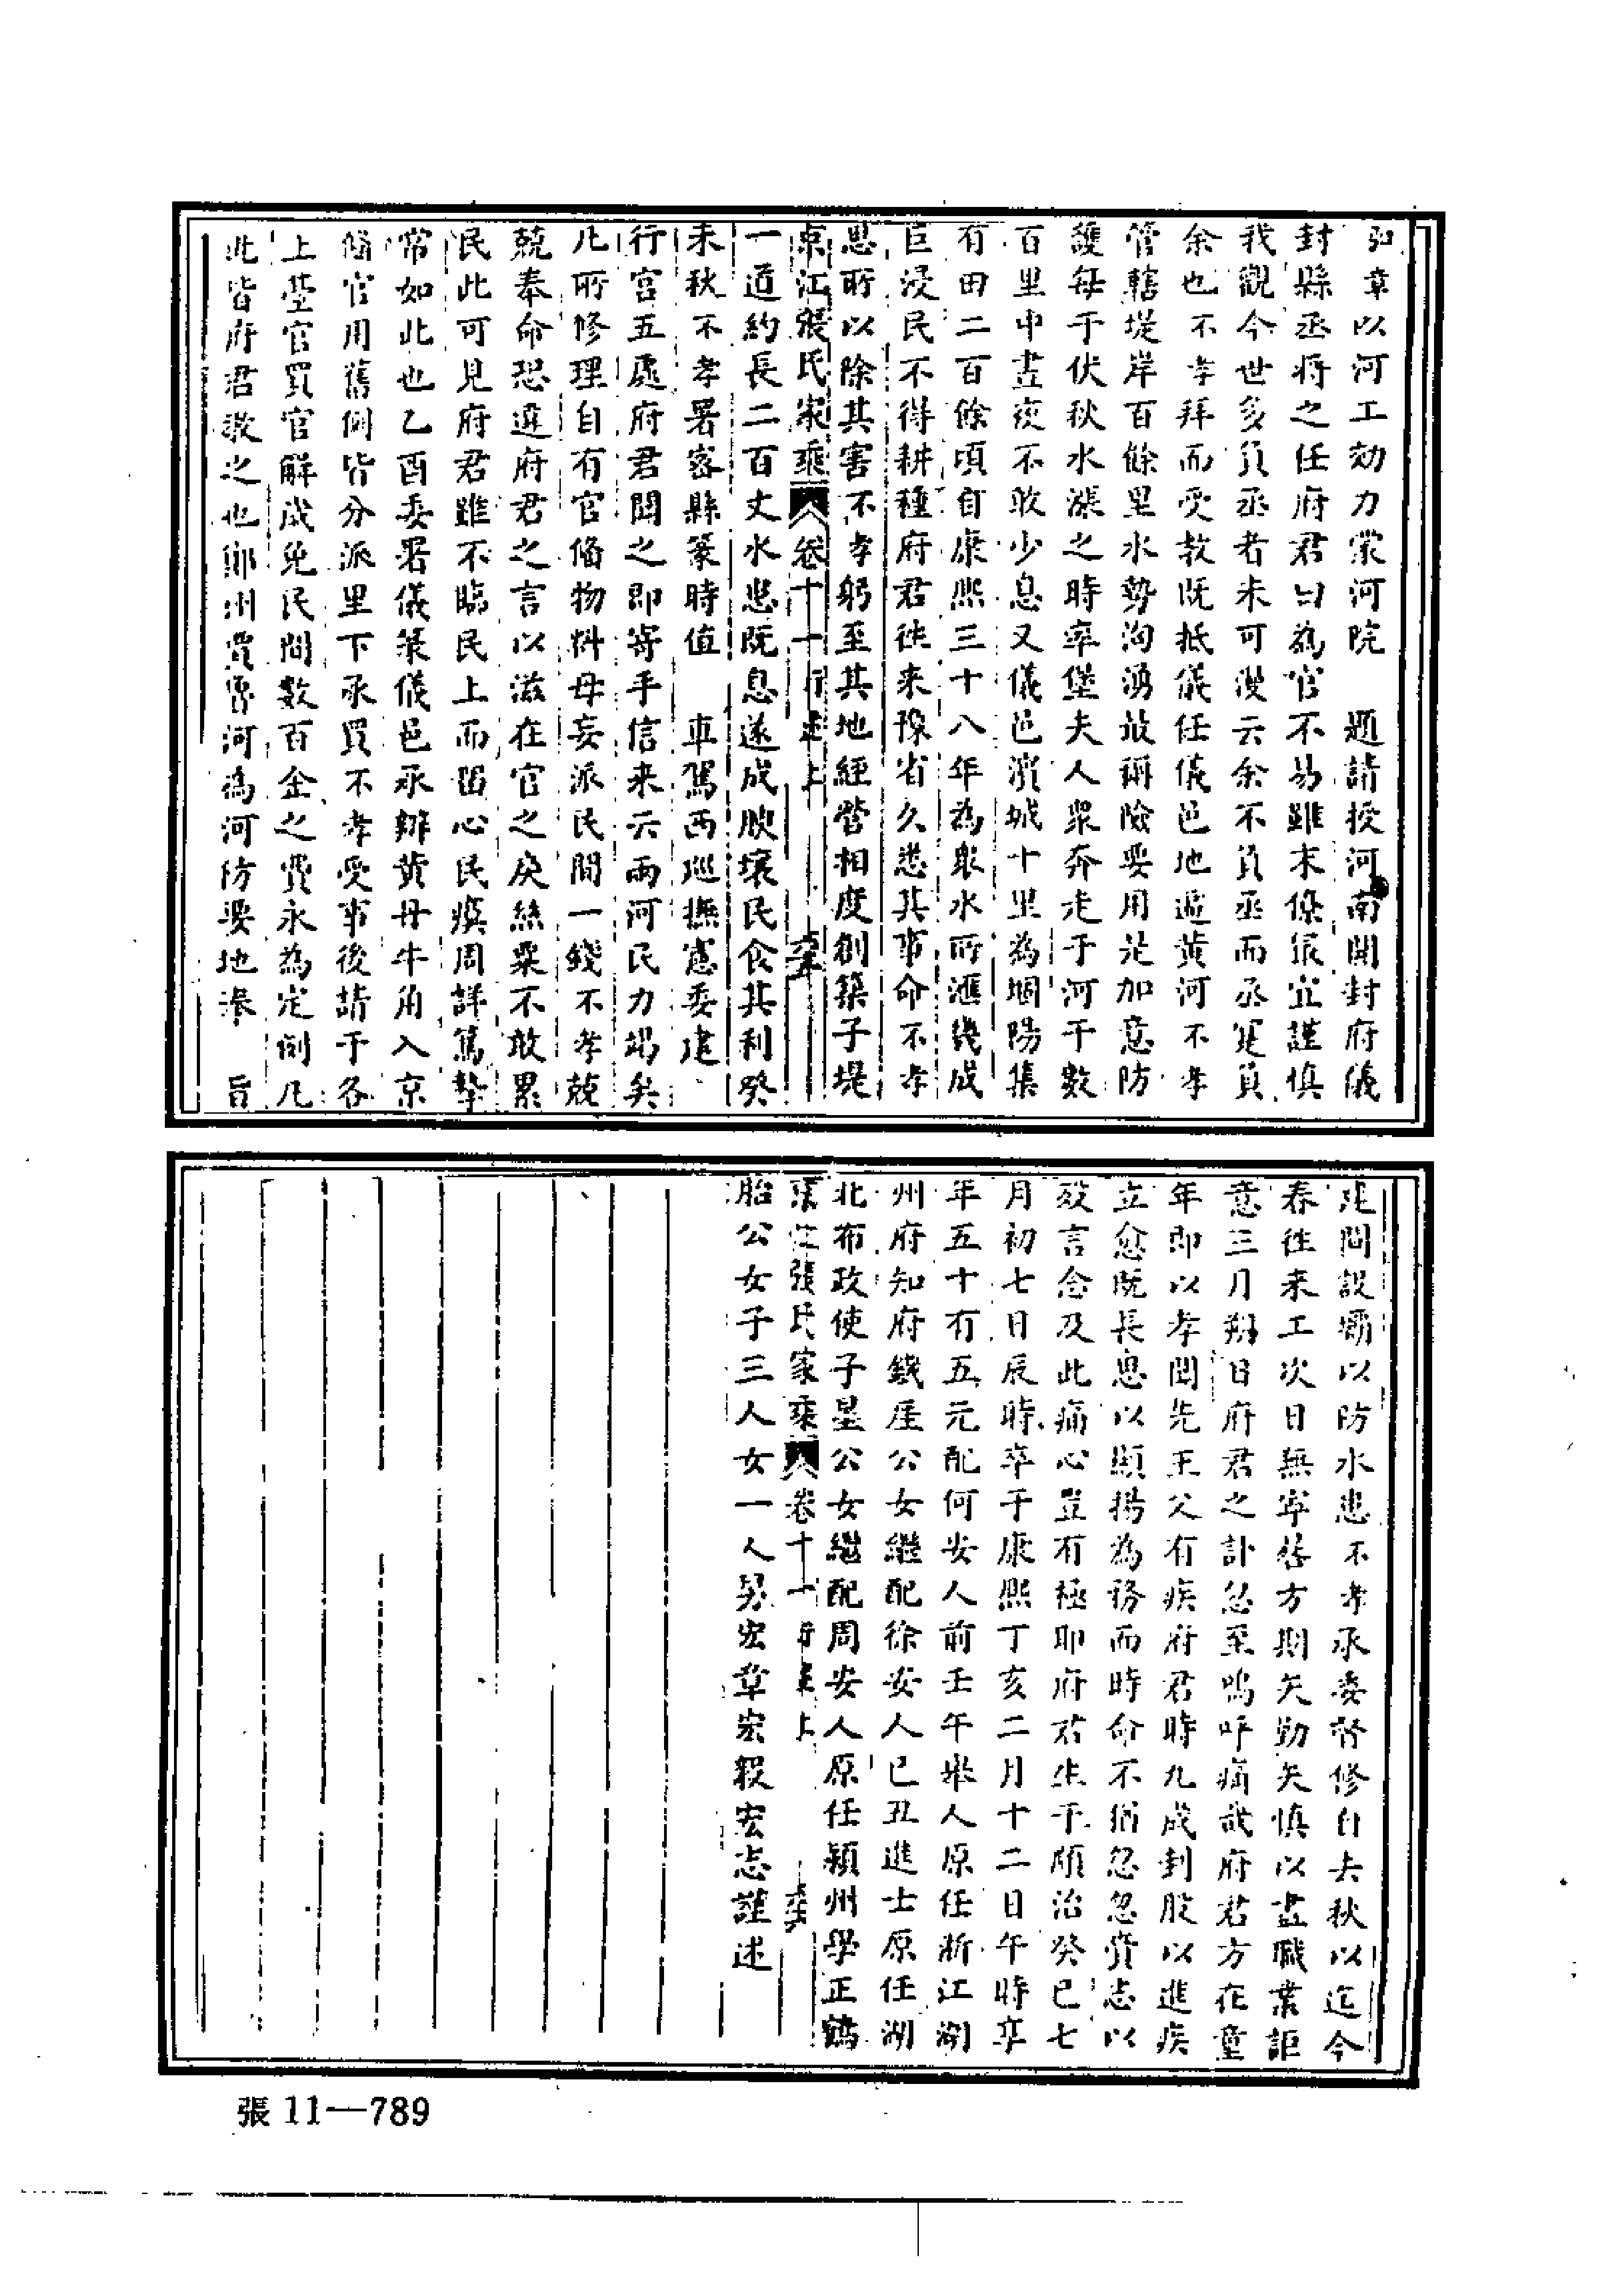 弘章以河工効力蒙河院　題請授河南開封府儀
封縣丞將之任府君曰為官不易雖末僚宜謹慎
我觀今世多負丞者未可漫云余不負丞而丞寔負
余也不孝拜而受教既抵儀任儀邑地逼黃河不孝
管轄堤岸百餘里水勢洶湧最稱險要用是加意防
護每于伏秋水漲之時率堡夫人衆奔走于河干數
百里中晝夜不敢少息又儀邑濱城十里為堌陽集
有田二百餘頃自康熙三十八年為衆水所滙幾成
巨浸民不得耕種府君往来豫省久悉其事命不孝
思所以除其害不孝躬至其地經營相度創築子堤
京江張氏家乘　卷十一　行述上
一道約長二百丈水患既息遂成腴壤民食其利癸
未秋不孝署寧縣篆時值　車駕西巡撫憲委建
行宫五處府君聞之即寄手信来云兩河民力竭矣
凡所修理自有官俻物料毋妄派民間一錢不孝兢
兢奉命恐違府君之言以滋在官之戾絲粟不敢累
民此可見府君雖不臨民上而留心民瘼周詳篤摯
常如此也乙酉委署儀篆儀邑承辦黃毋牛角入京
俻官用舊例皆分派里下承買不孝受事後請于各
上臺官買官解咸免民間數百金之費永為定例凡
此皆府君教之也鄭州賈魯河為河防要地奉　旨
建閘設壩以防水患不孝承委督修自去秋以迄今
春往来工次日無寧晷方期矢勤矢慎以盡職業詎
意三月朔日府君之訃忽至嗚呼痛哉府君方在童
年即以孝聞先王父有疾府君時九歲刲股以進疾
立愈既長思以顯揚為務而時命不猶忽忽賫志以
殁言念及此痛心豈有極耶府君生于順治癸巳七
月初七日辰時卒于康熙丁亥二月十二日午時享
年五十有五元配何安人前壬午舉人原任浙江湖
州府知府錢厓公女繼配徐安人己丑進士原任湖
北布政使子星公女繼配周安人原任潁州學正鶴
京江張氏家乘　卷十一　行述上
胎公女子三人女一人男宏章宏毅宏志謹述
張 11—789